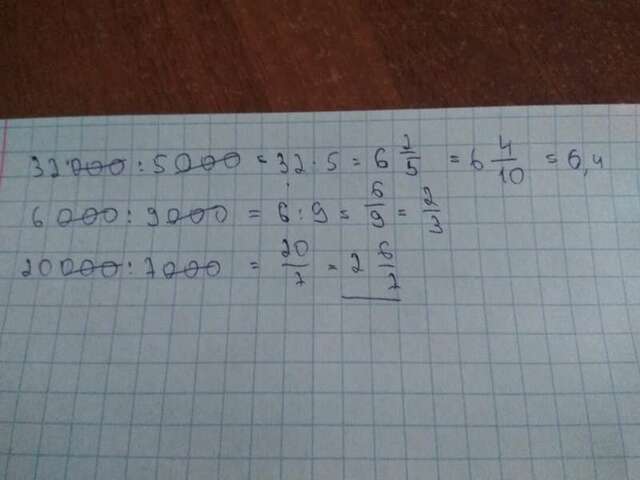 32 000 : 5 000 = 32 : 5 = 6 2/5 = 6 4/10 = 6,4
6 000 : 9 000 = 6 : 9 = 6/9 = 2/3
20 000 : 7 000 = 20/7 = 2 6/7